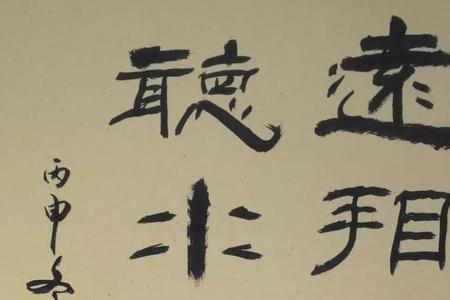 遠看
聽水
丙申冬